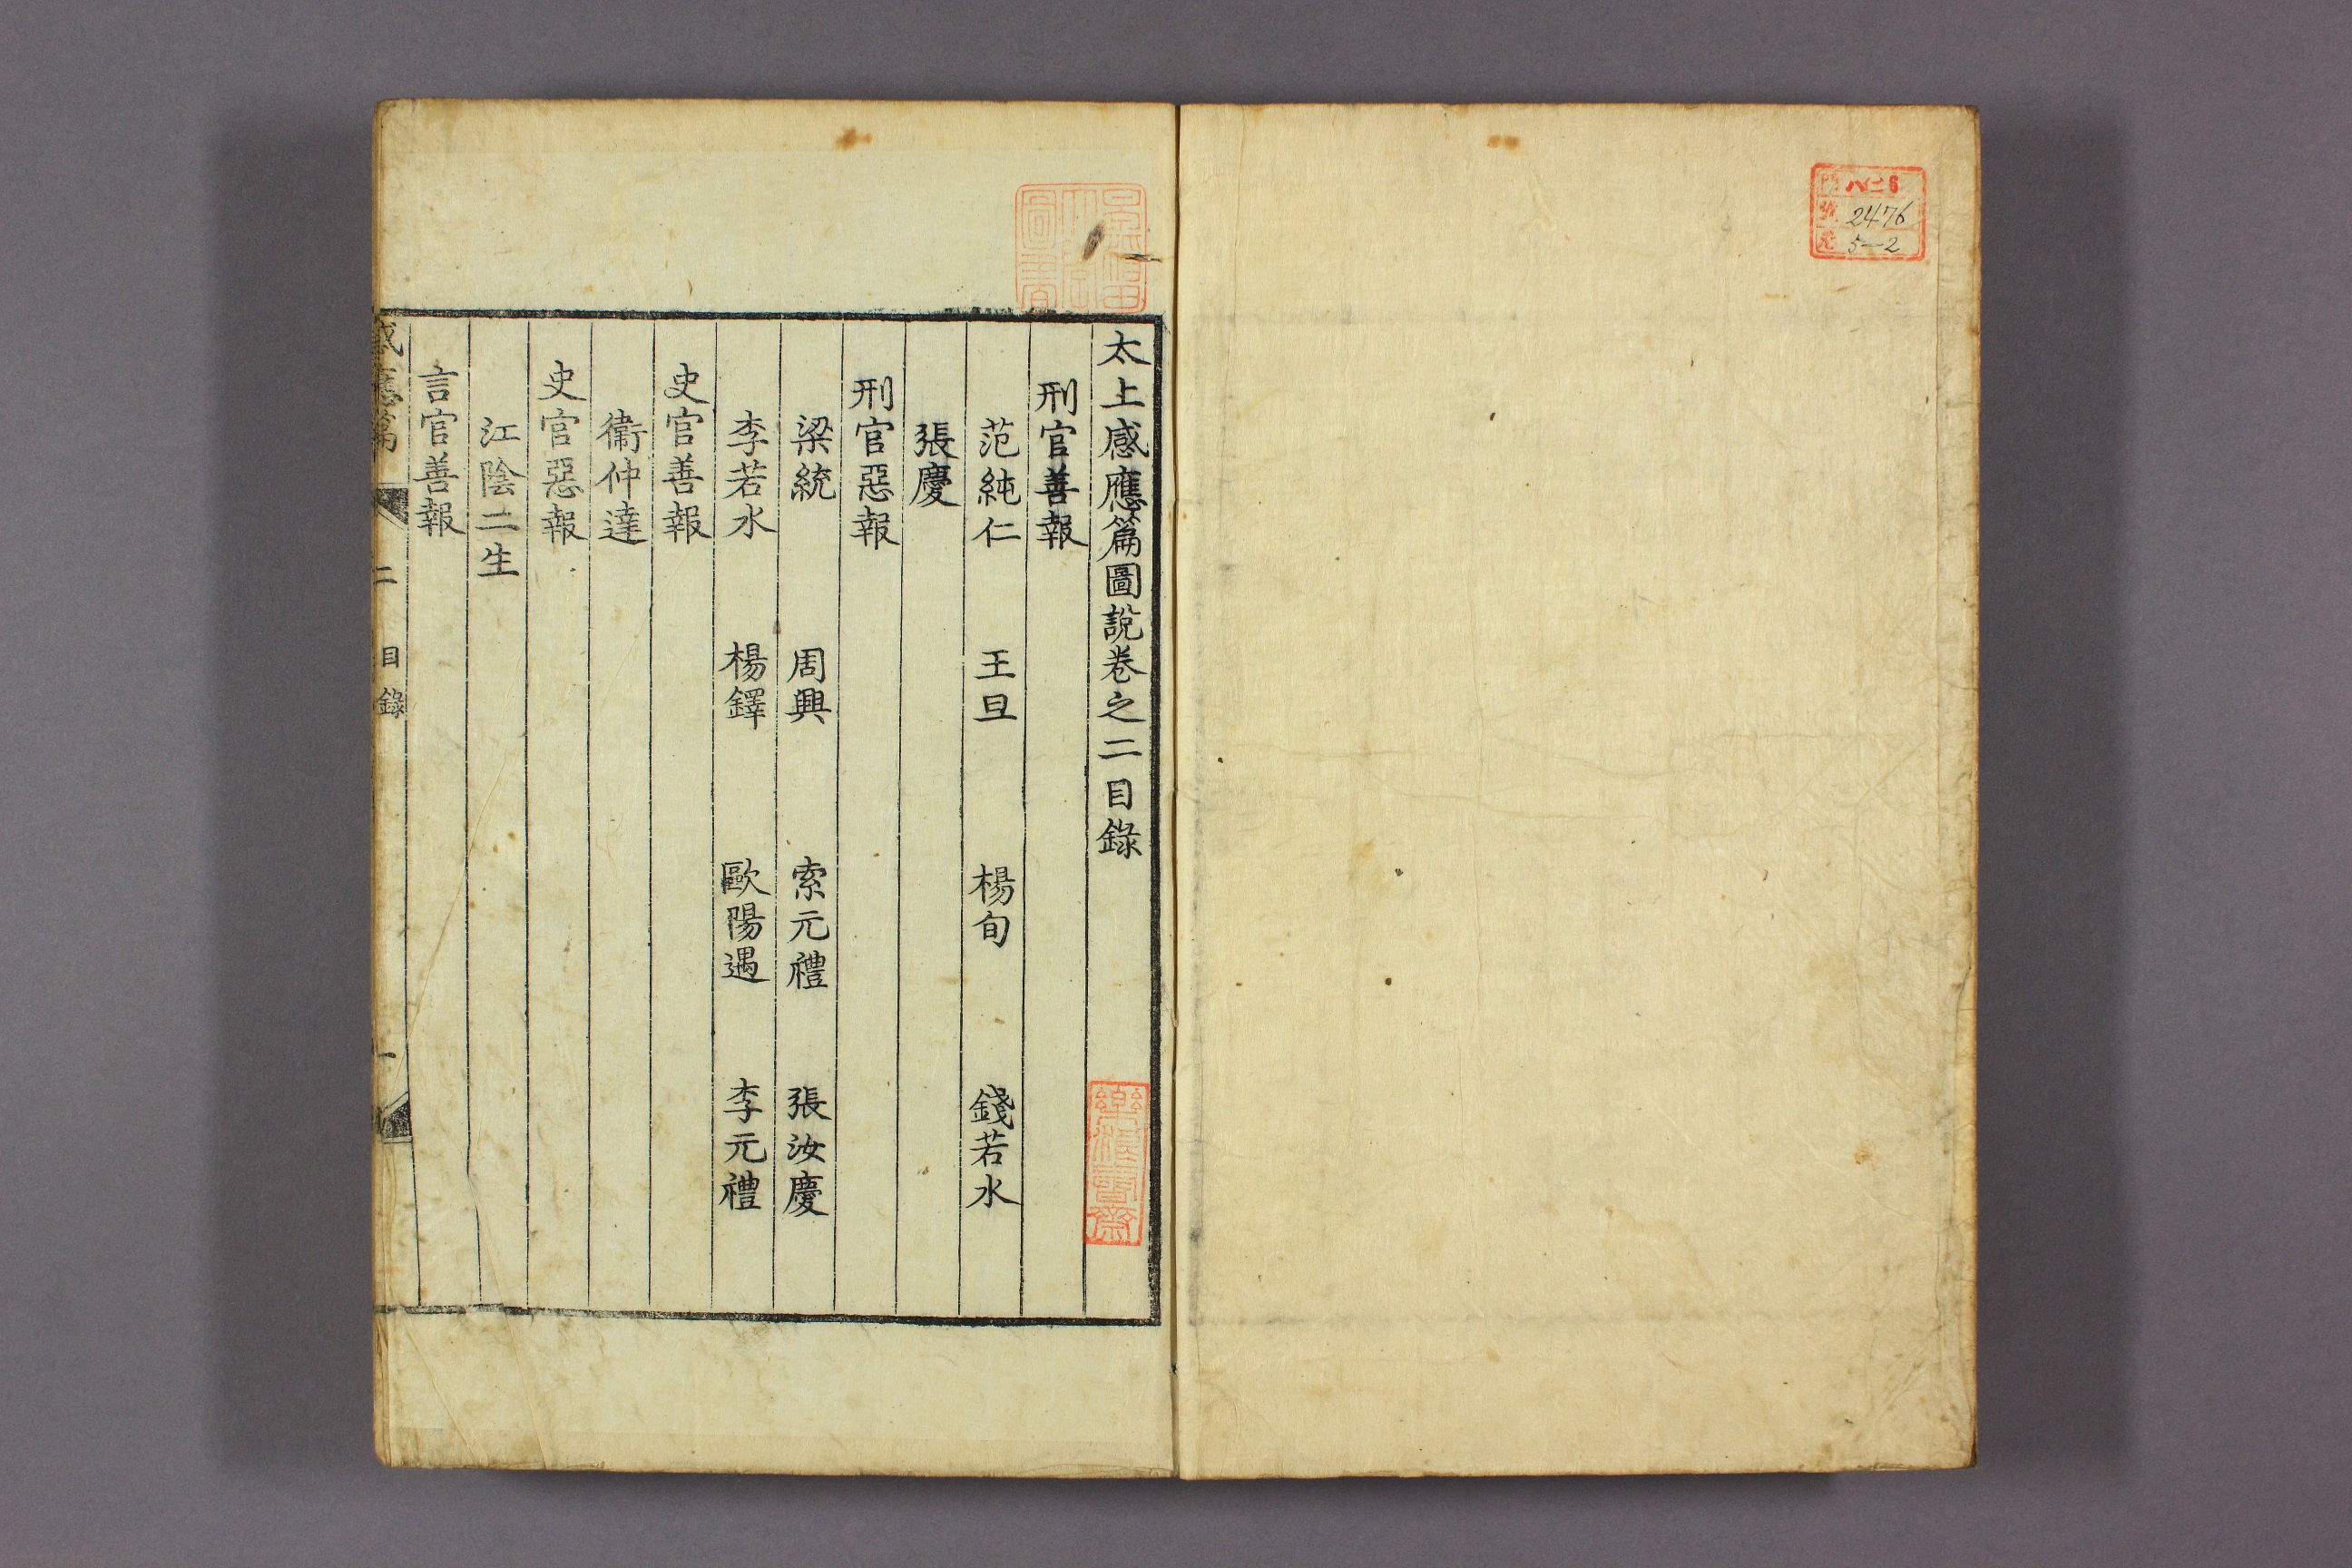 門 八二6
號 2476
卷 5-2
太上感應篇圖說卷之二目錄
刑官善報
范純仁 王旦 楊旬 錢若水
張慶
刑官惡報
梁統 周興 索元禮 張汝慶
李若水 楊鐸 歐陽遇 李元禮
史官善報
衞仲達
史官惡報
江陰二生
言官善報
感應篇 二 目錄 一